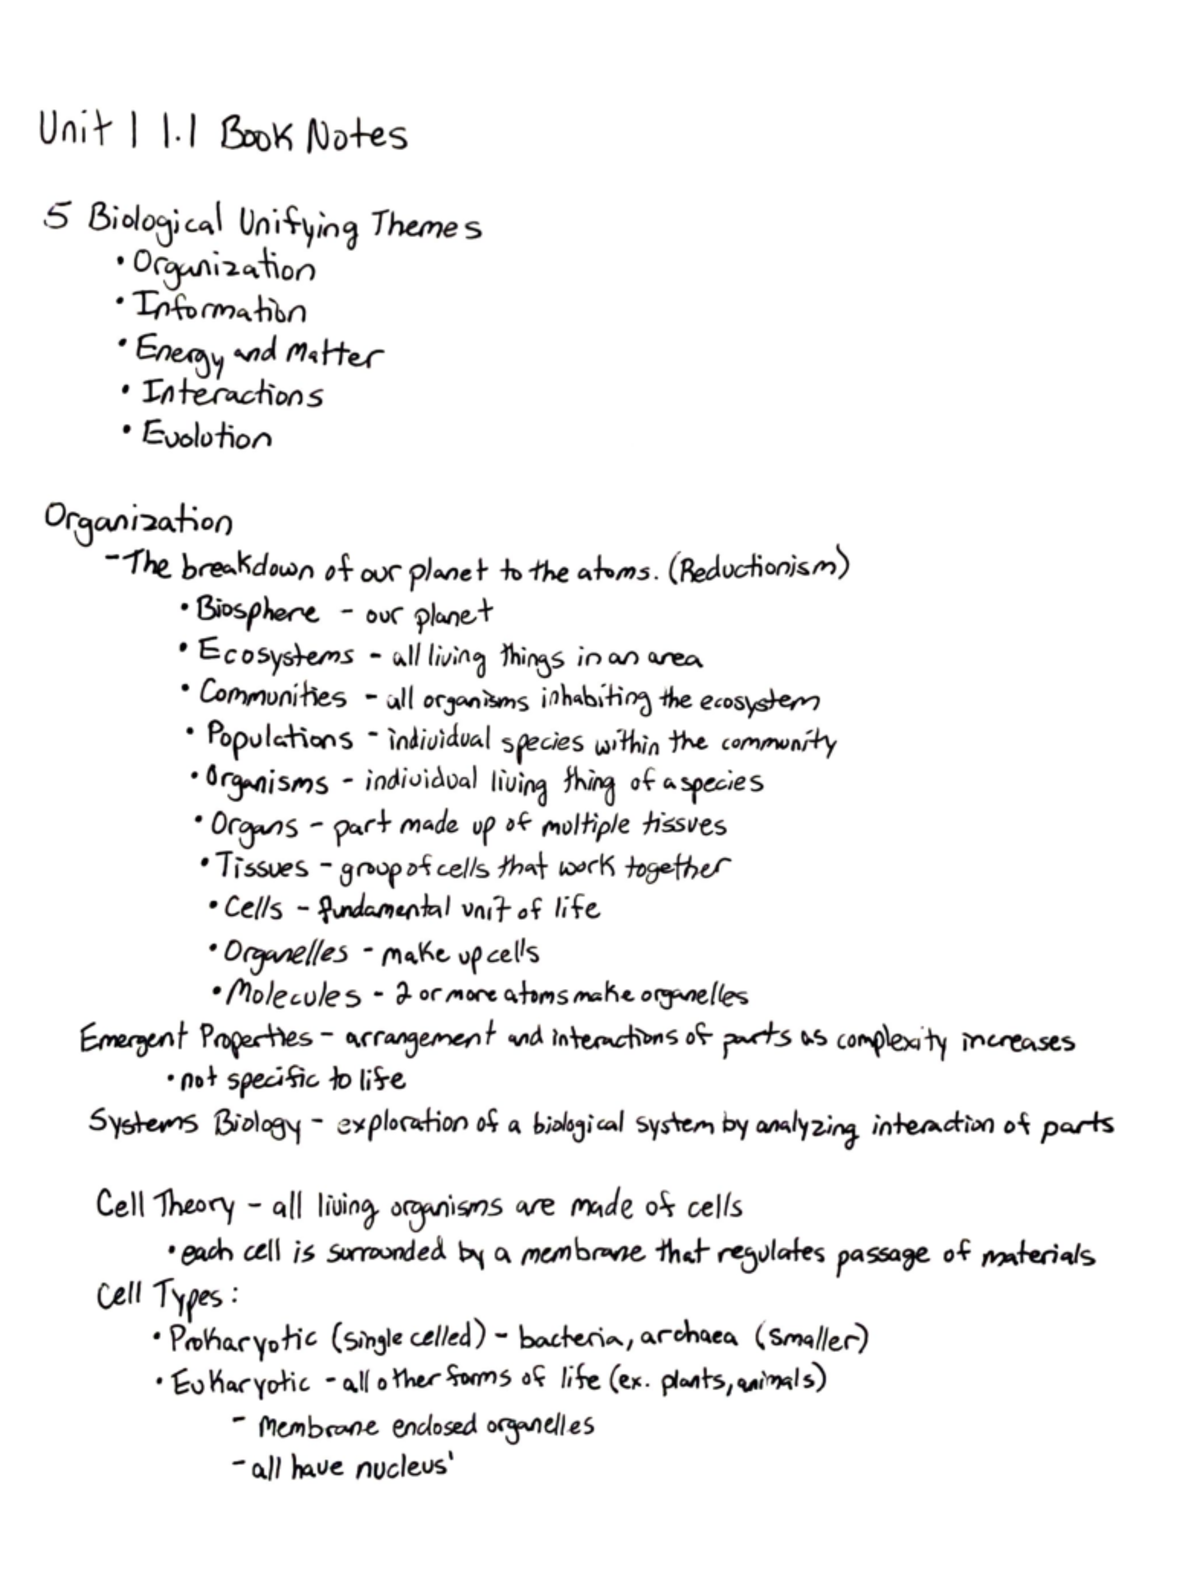 Unit 1 1.1 Book Notes
5 Biological Unifying Themes
• Organization
• Information
• Energy and Matter
• Interactions
• Evolution
Organization
- The breakdown of our planet to the atoms. (Reductionism)
• Biosphere - our planet
• Ecosystems - all living things in an area
• Communities - all organisms inhabiting the ecosystem
• Populations - individual species within the community
• Organisms - individual living thing of a species
• Organs - part made up of multiple tissues
• Tissues - group of cells that work together
• Cells - fundamental unit of life
• Organelles - make up cells
• Molecules - 2 or more atoms make organelles
Emergent Properties - arrangement and interactions of parts as complexity increases
• not specific to life
Systems Biology - exploration of a biological system by analyzing interaction of parts
Cell Theory - all living organisms are made of cells
• each cell is surrounded by a membrane that regulates passage of materials
Cell Types:
• Prokaryotic (single celled) - bacteria, archaea (smaller)
• Eukaryotic - all other forms of life (ex. plants, animals)
- Membrane enclosed organelles
- all have nucleus'